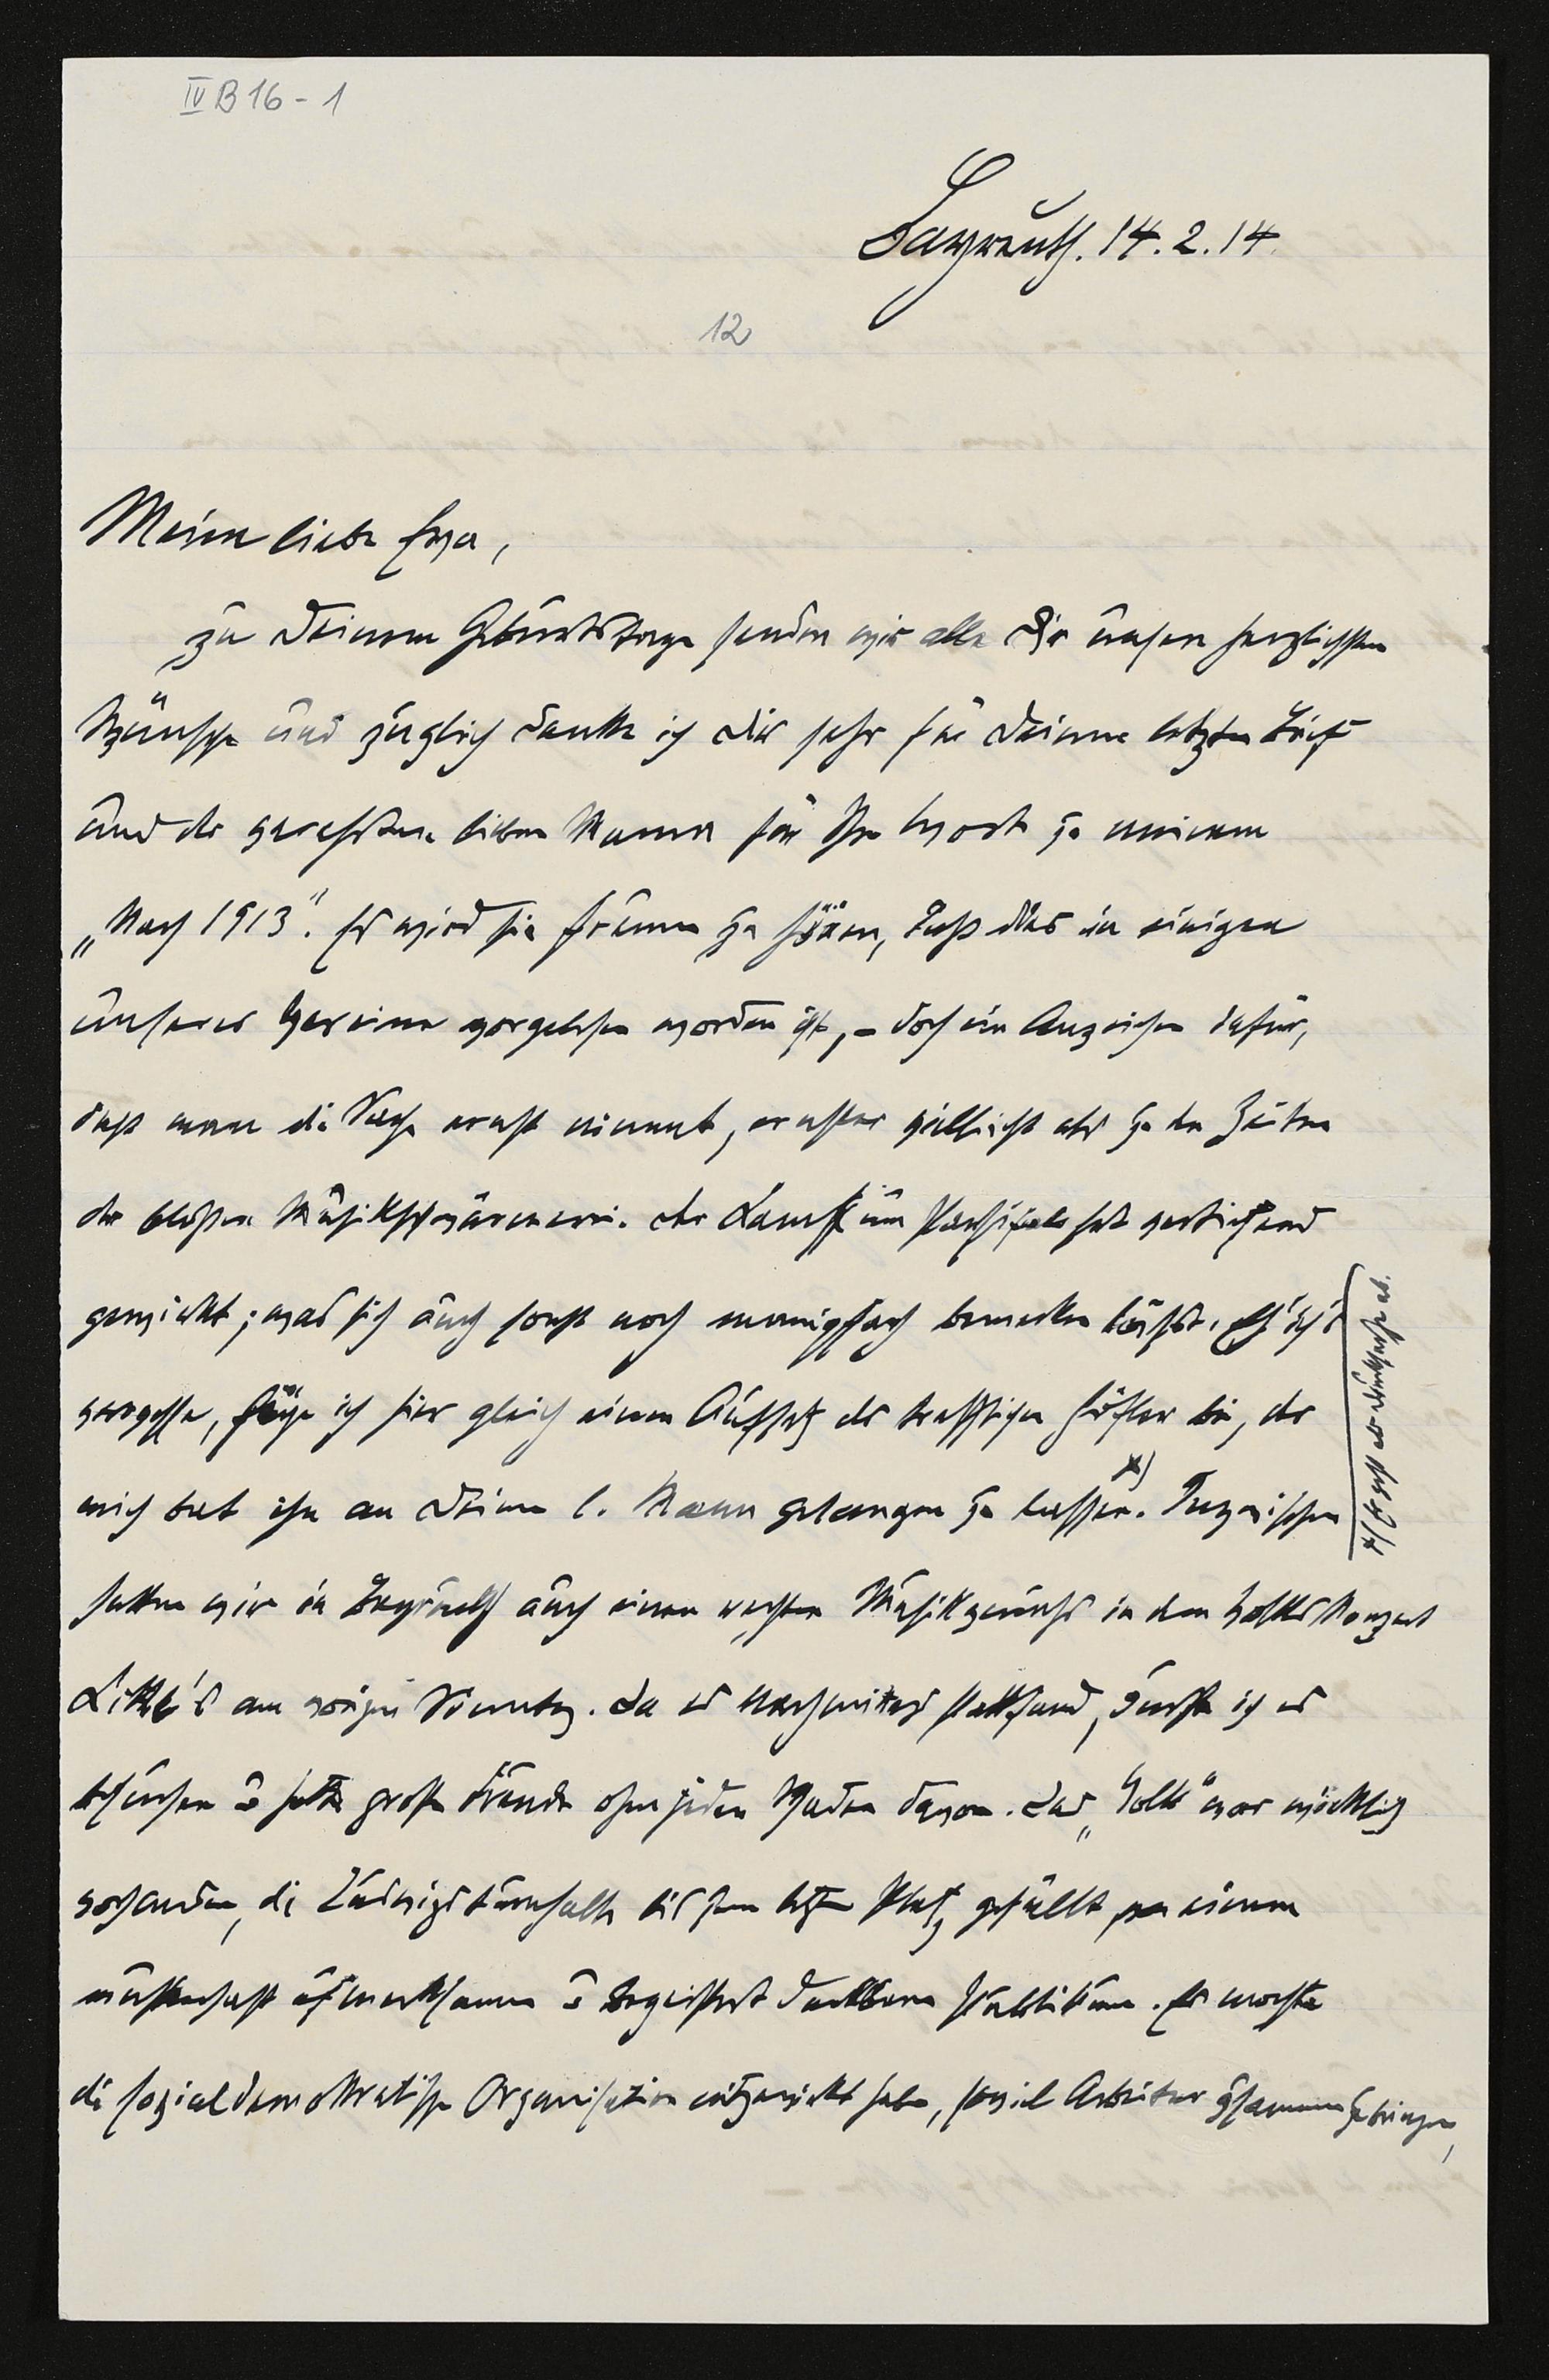 IV B 16 - 1
Bayreuth. 14.2.14.
12
Meine liebe Eva,
zu Deinem Geburtstage senden wir alle Dir unsere herzlichsten
Wünsche und zugleich danke ich Dir sehr für Deinen letzten Brief
und der verehrten lieben Mama für Ihr Wort zu meinem
„Nach 1913". Es wird sie freuen zu hören, daß dies in einigen
unserer Vereine vorgelesen worden ist, – doch ein Anzeichen dafür,
daß man die Sache ernst nimmt, ernster vielleicht als zu den Zeiten
der bloßen Musikschwärmerei. Der Kampf um Parsifal hat vertiefend
gewirkt; was sich auch sonst noch mannigfach bemerken läßt. Eh' ich's
vergesse, füge ich hier gleich einen Aufsatz des trefflichen Höfler bei, der
mich bat ihn an Deine l. Mama gelangen zu lassen. x) Inzwischen
x) Er geht als Drucksache ab.
hatten wir in Bayreuth auch einen rechten Musikgenuß in dem Volkskonzert
am vorigen Sonntag. Da es Nachmittags stattfand, durfte ich es
besuchen u hatte große Freude ohne jeden Schaden davon. Das „Volk" war wirklich
vorhanden, die Ludwigsturnhalle bis zum letzten Platz gefüllt von einem
musterhaft aufmerksamen u begeistert dankbaren Publikum. Es mochte
die sozialdemokratische Organisation mitgewirkt haben, soviel Arbeiter zusammenzubringen,